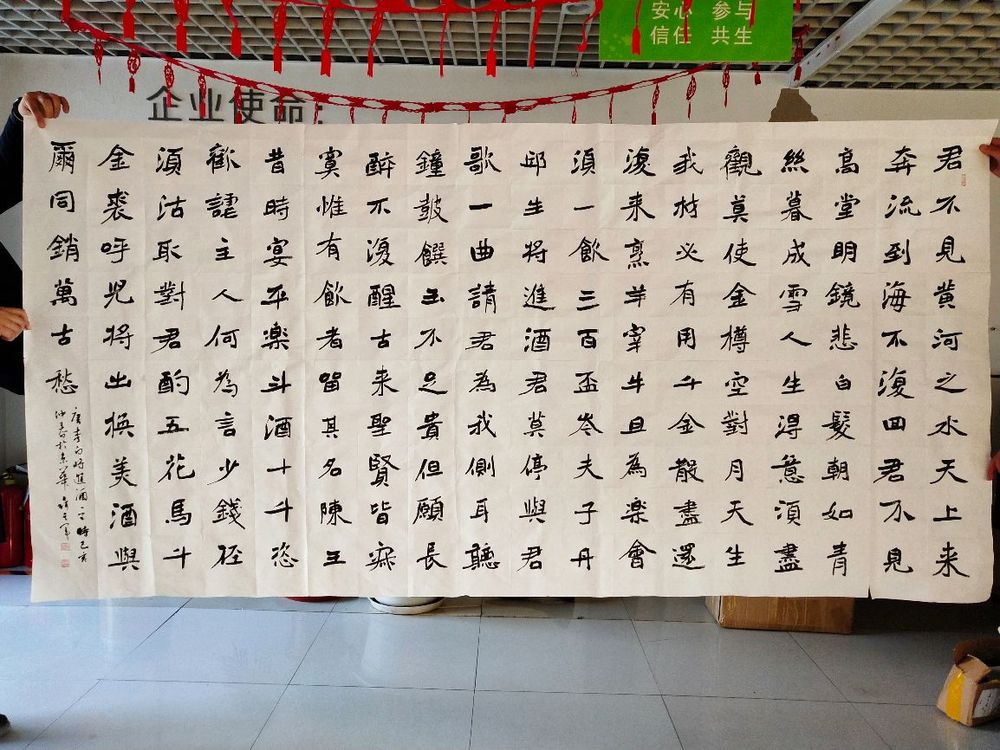 安心 参与
信任 共生
企业使命：
君不見黄河之水天上来
奔流到海不復囬君不見
高堂明鏡悲白髮朝如青
絲暮成雪人生得意須盡
觀莫使金樽空對月天生
我材必有用千金散盡還
復来烹羊宰牛且為楽會
須一飲三百盃岑夫子丹
邱生将進酒君莫停與君
歌一曲請君為我側耳聽
鐘鼓饌玉不足貴但願長
醉不復醒古来聖賢皆寂
寞惟有飲者留其名陳王
昔時宴平楽斗酒十千恣
歡謔主人何為言少錢径
須沽取對君酌五花馬千
金裘呼児将出换美酒與
爾同銷萬古愁
唐李白将進酒 時己亥
仲春於京華